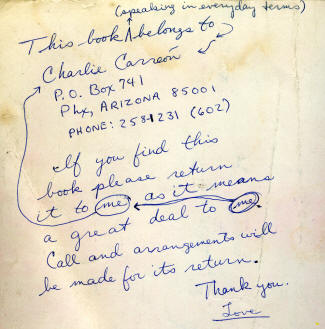 (speaking in everyday terms)
This book belongs to
Charlie Carreón
P.O. Box 741
Phx, ARIZONA 85001
PHONE: 258-1231 (602)
If you find this
book please return
it to me as it means
a great deal to me.
Call and arrangements will
be made for its return.
Thank you.
Love